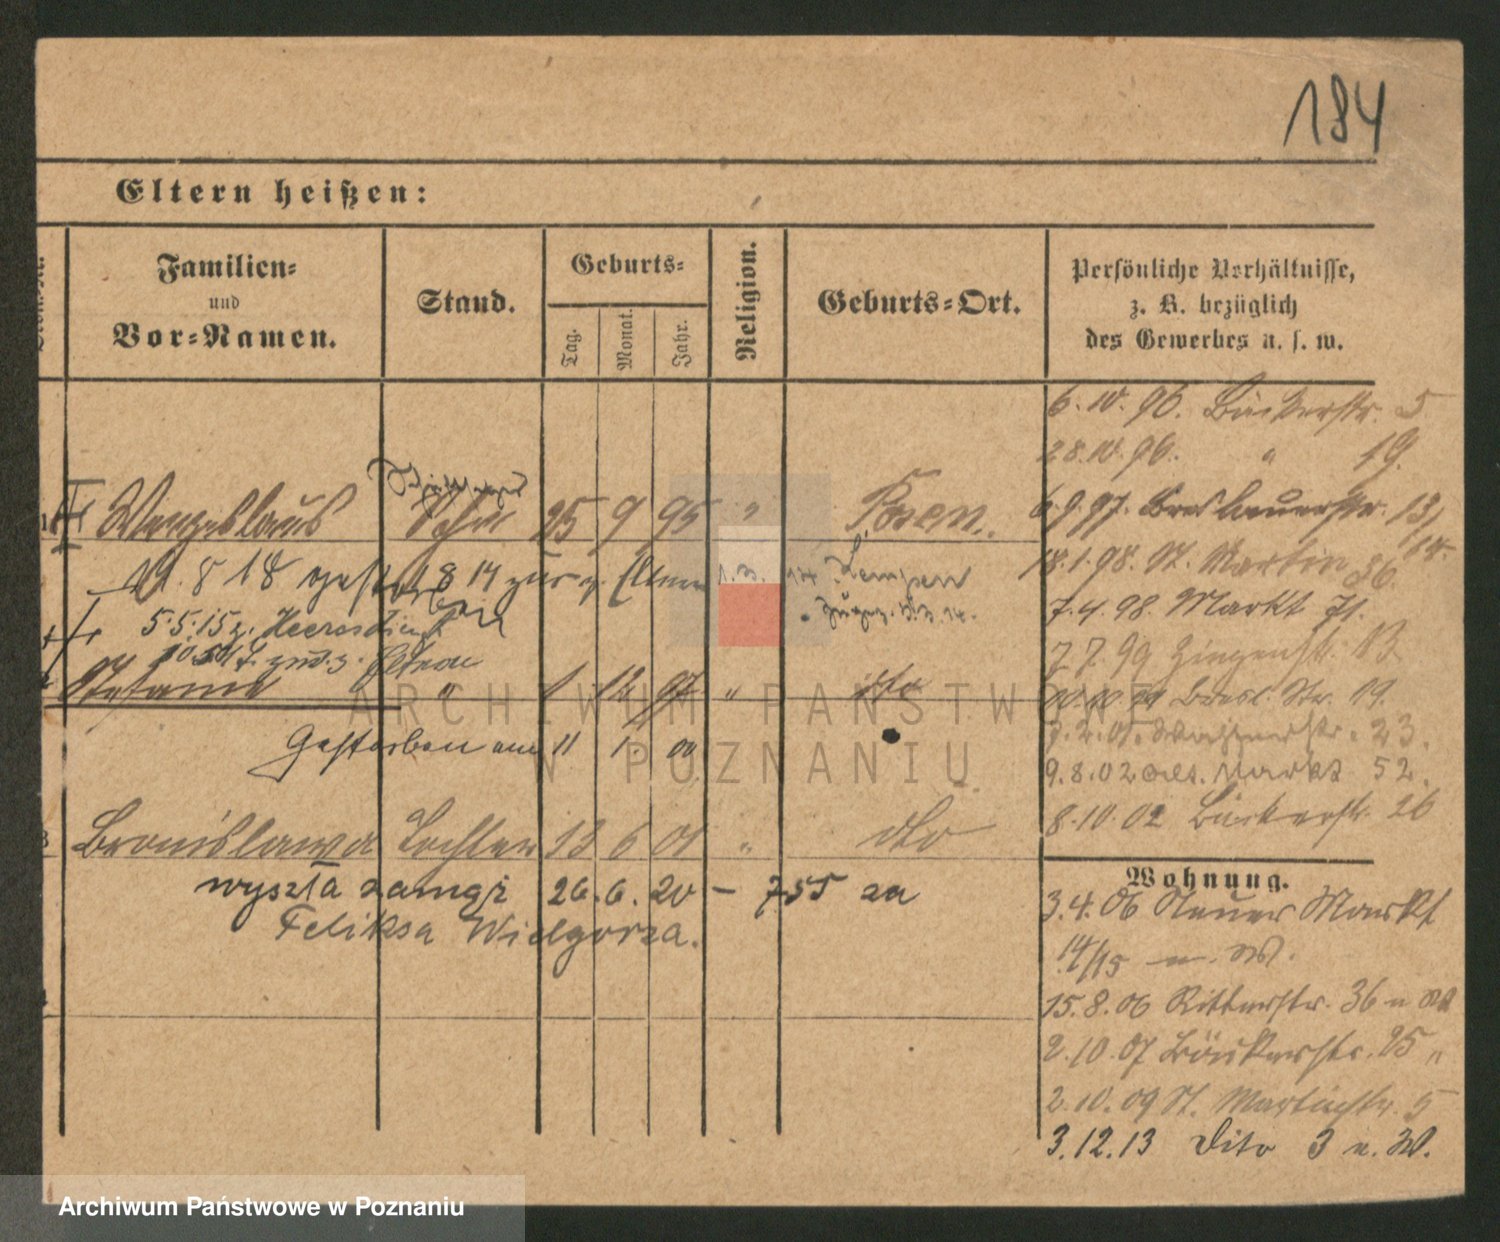 184
Eltern heißen:
Familien=
und
Vor=Namen.
Stand.
Geburts=
Tag.
Monat.
Jahr.
Religion.
Geburts=Ort.
Persönliche Verhältnisse,
z. B. bezüglich
des Gewerbes u. s. w.
6.10.96. Bäckerstr. 5
28.10.96. " 19.
6.9.97. Breslauerstr. 13/14
18.1.98. St. Martin 36.
7.4.98. Markt 71.
7.7.99 Ziegenstr. 13
Bresl. Str. 19.
23.
9.8.02 Alt. Markt 52.
8.10.02 Bäckerstr. 26
Wohnung.
3.4.06 Neuer Markt
14/15 n. W.
15.8.06 Ritterstr. 36 n W
2.10.07 Bäckerstr. 25 "
2.10.09 St. Martinstr. 5
3.12.13 dito 3 n. W.
Wenzeslaus Sohn 25 9 95 " Posen.
11.8 18 gestorben
8 14 zur z. Eltern 1.3. Kempen
5.5.15 z. Heeresdienst
zur z. Eltern
Stefanie " 1 12 97 " dto
Gestorben am 11 1. 00
3 Bronislawa Tochter 13 6 01 " dto
wyszła zamąż 26.6.20 - 755 za
Feliksa Wielgorza.
ARCHIWUM PAŃSTWOWE
W POZNANIU
Archiwum Państwowe w Poznaniu